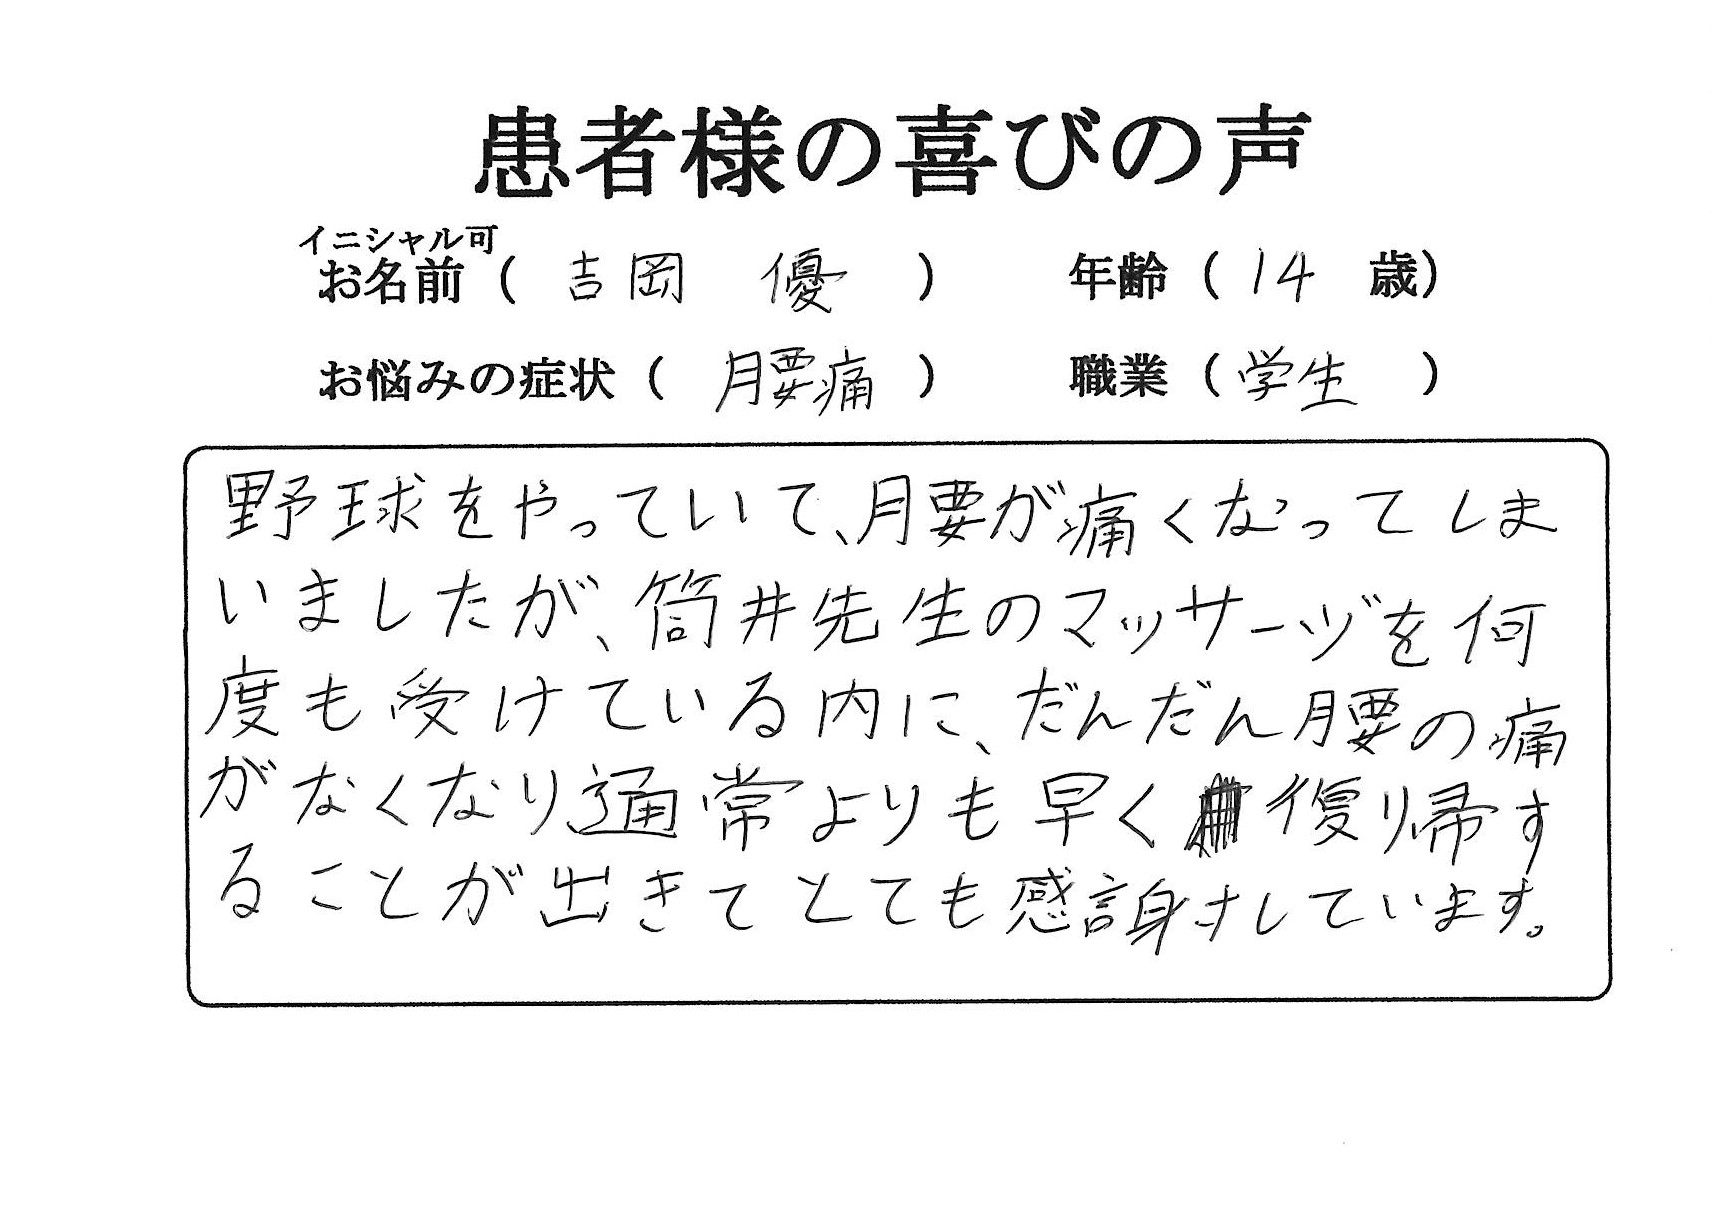 患者様の喜びの声
イニシャル可
お名前（ 吉岡 優 ） 年齢（ 14 歳）
お悩みの症状（ 腰痛 ） 職業（ 学生 ）
野球をやっていて、腰が痛くなってしま
いましたが、筒井先生のマッサージを何
度も受けている内に、だんだん腰の痛
がなくなり通常よりも早く復帰す
ることが出きてとても感謝しています。